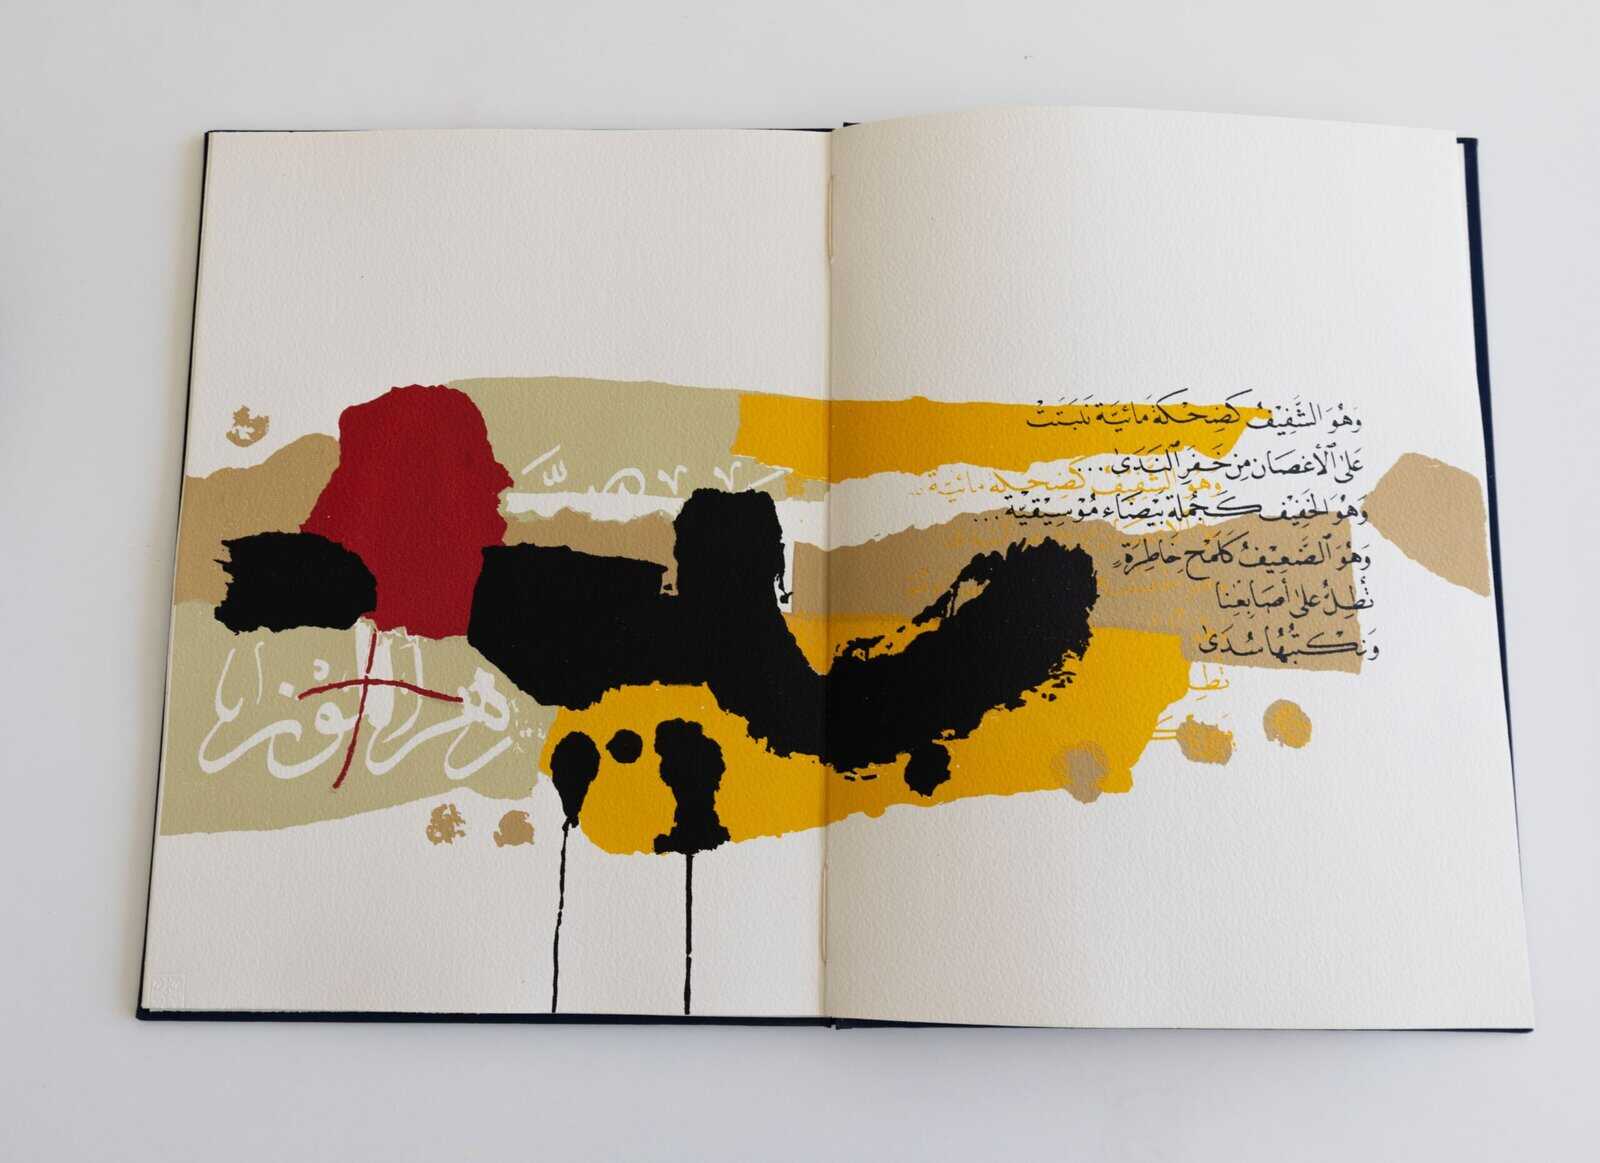 وَهُوَ الشَّفِيْفُ كَضِحْكَةٍ مَائِيَّةٍ نَبَتَتْ
عَلَى الأَغصَانِ مِن خَفَرِ النَدَى...
وَهُوَ الخَفِيْف كَجُملَةٍ بَيْضَاء مُوْسِيْقيَّةٍ ...
وَهُوَ الضَعِيْفُ كَلَمْحِ خَاطِرَةٍ
تُطِلُّ عَلى أَصَابِعِنا
وَنَكْتبُهَا سُدَى
وهو الشفيف كضحكة مائية